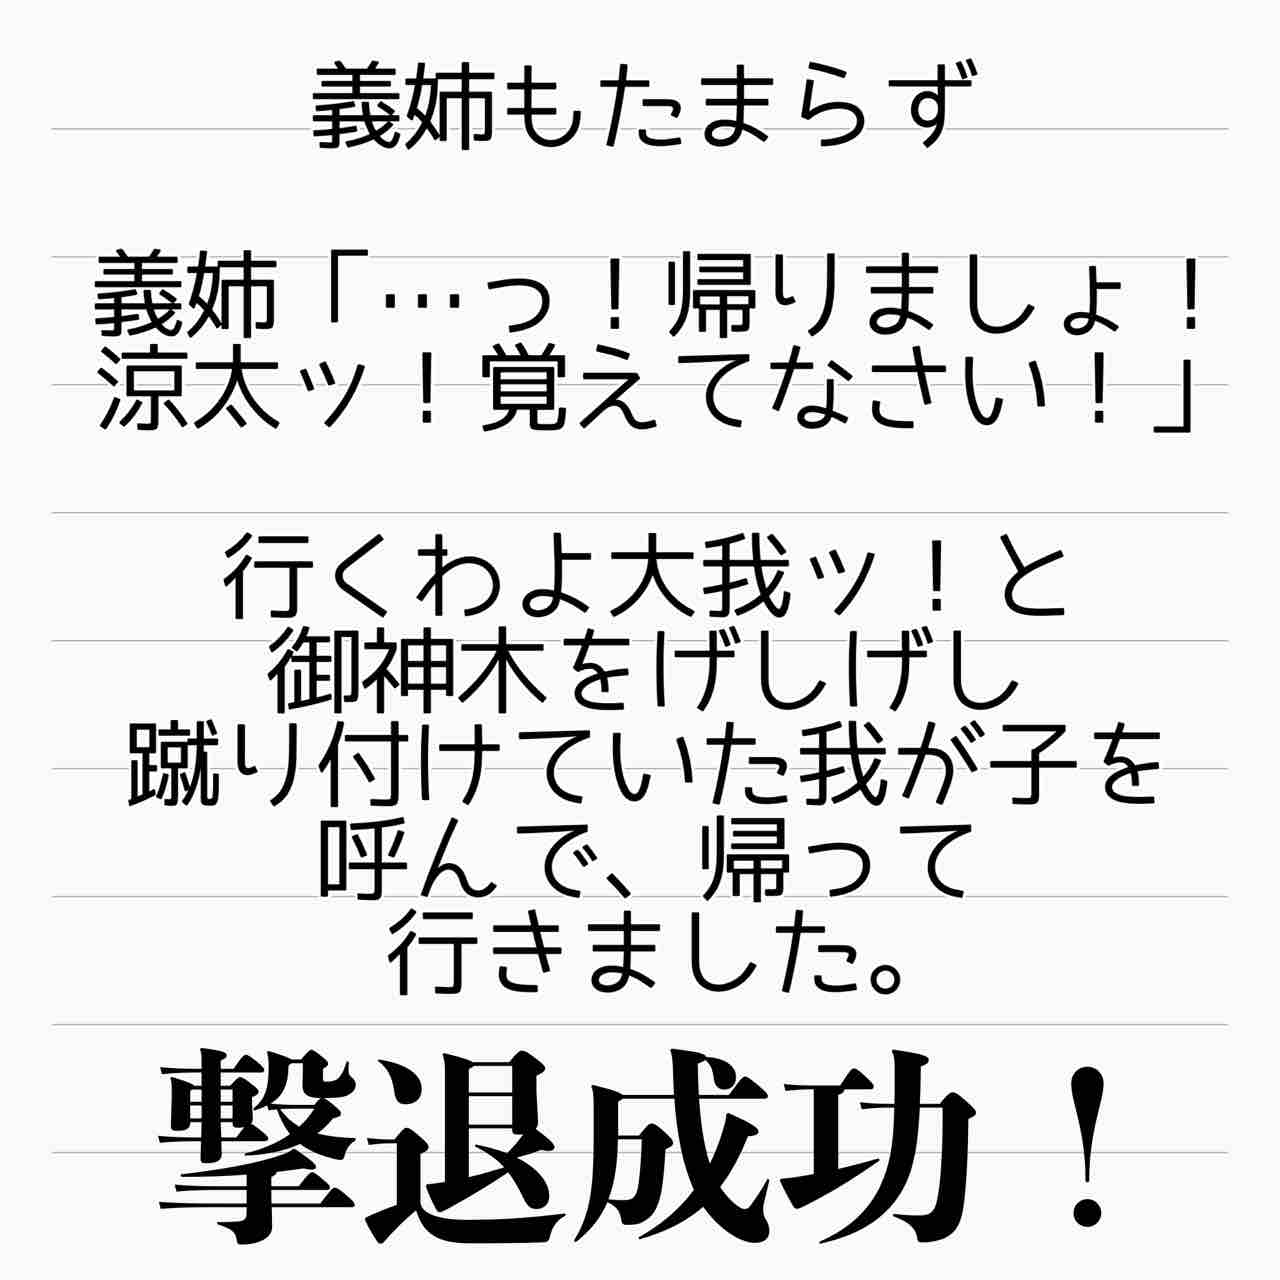 義姉もたまらず
義姉「…っ！帰りましょ！
涼太ッ！覚えてなさい！」
行くわよ大我ッ！と
御神木をげしげし
蹴り付けていた我が子を
呼んで、帰って
行きました。
撃退成功！